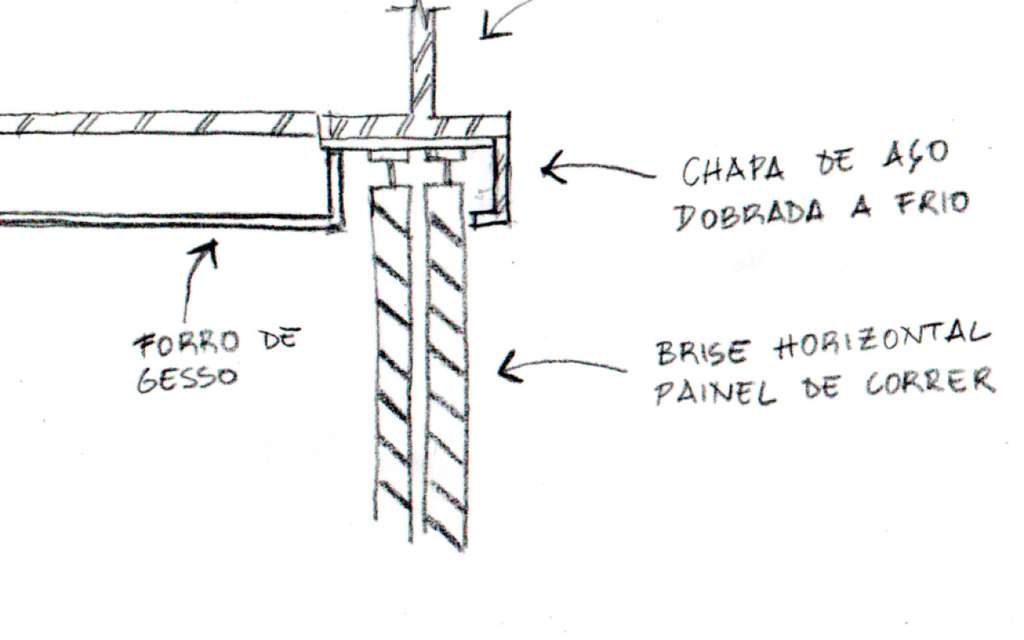 CHAPA DE AÇO
DOBRADA A FRIO
FORRO DE
GESSO
BRISE HORIZONTAL
PAINEL DE CORRER